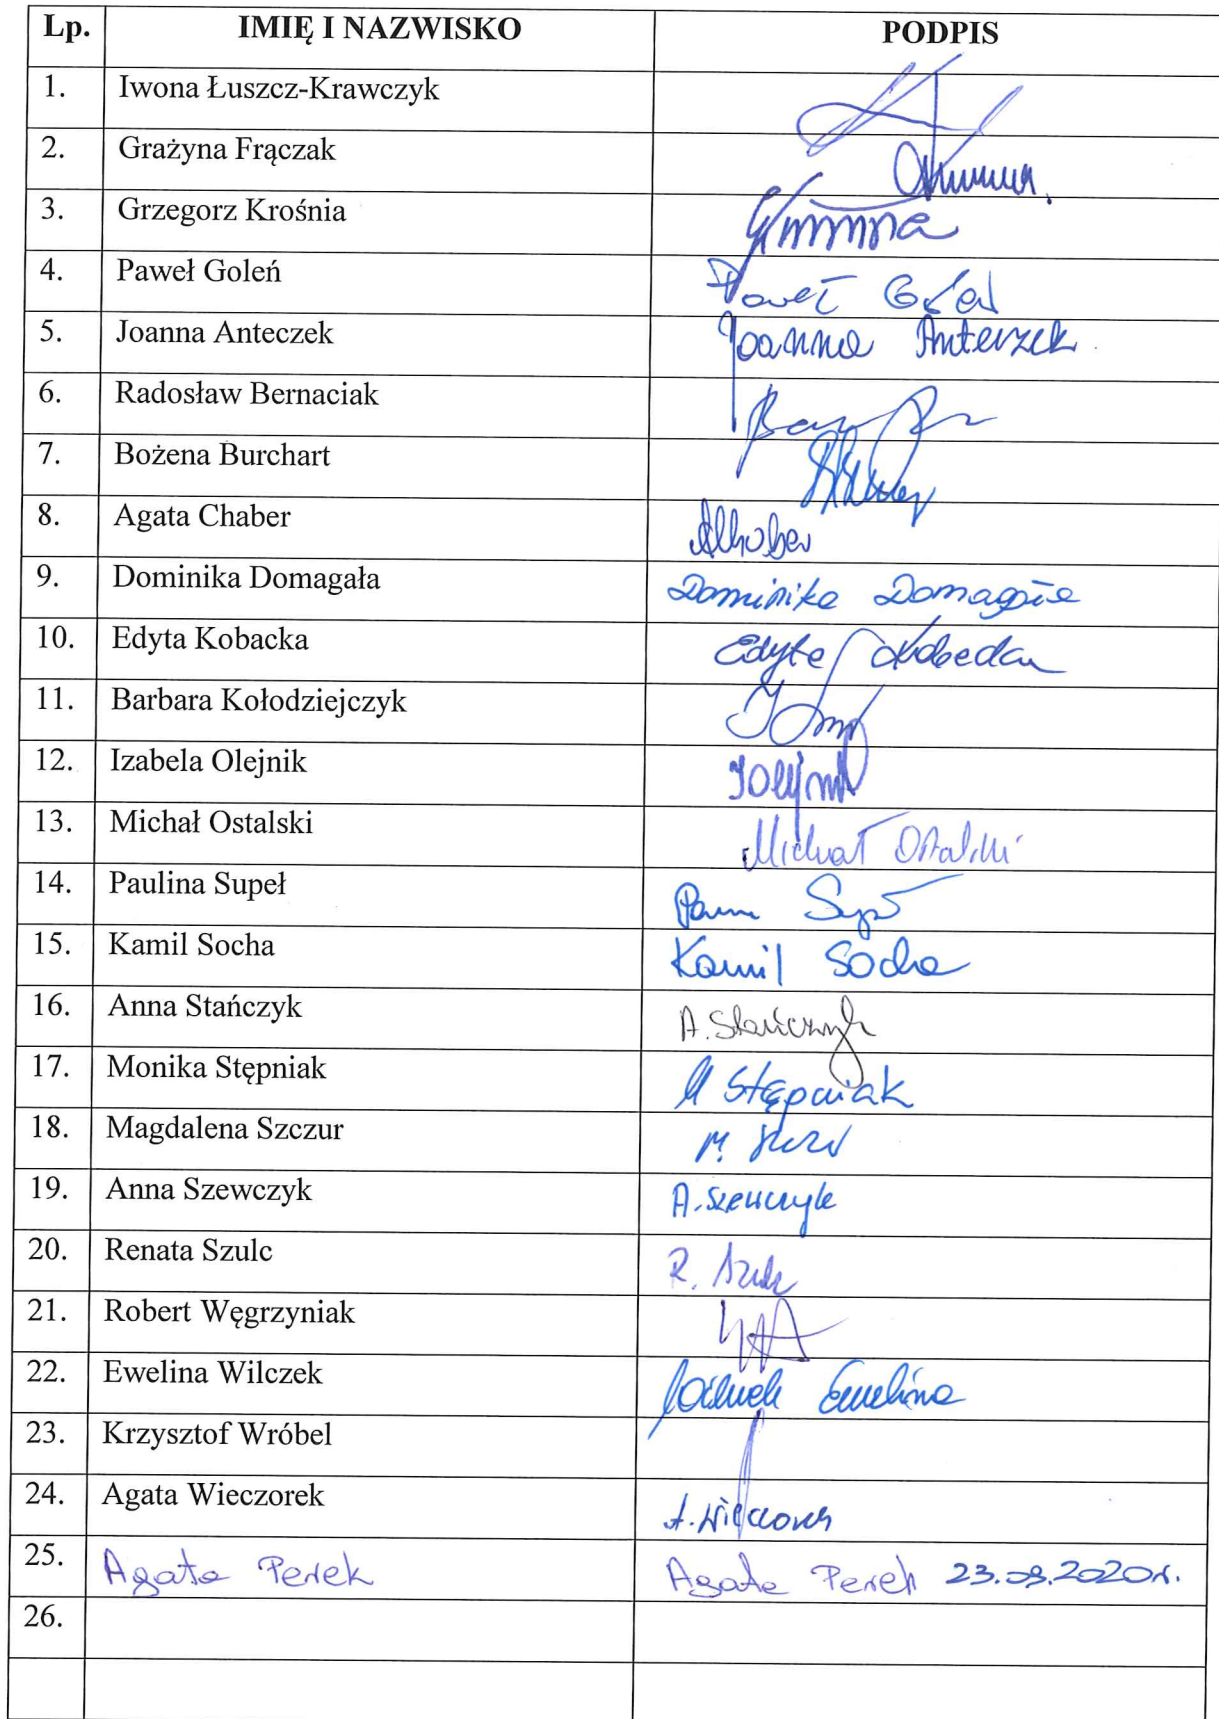 Lp. IMIĘ I NAZWISKO PODPIS
1. Iwona Łuszcz-Krawczyk
2. Grażyna Frączak
3. Grzegorz Krośnia
4. Paweł Goleń Paweł Goleń
5. Joanna Anteczek Joanna Anteczek
6. Radosław Bernaciak
7. Bożena Burchart
8. Agata Chaber AChaber
9. Dominika Domagała Dominika Domagała
10. Edyta Kobacka Edyta Kobacka
11. Barbara Kołodziejczyk
12. Izabela Olejnik IOlejnik
13. Michał Ostalski Michał Ostalski
14. Paulina Supeł
15. Kamil Socha Kamil Socha
16. Anna Stańczyk A. Stańczyk
17. Monika Stępniak M Stępniak
18. Magdalena Szczur M.
19. Anna Szewczyk A. Szewczyk
20. Renata Szulc R. Szulc
21. Robert Węgrzyniak
22. Ewelina Wilczek Wilczek Ewelina
23. Krzysztof Wróbel
24. Agata Wieczorek A. Wieczorek
25. Agata Perek Agata Perek 23.09.2020r.
26.